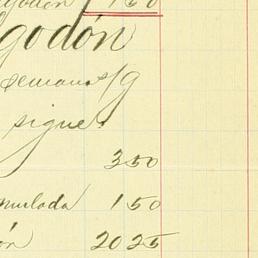 150
godón
semana s/g
sigue
350
mulada 150
ón 2025